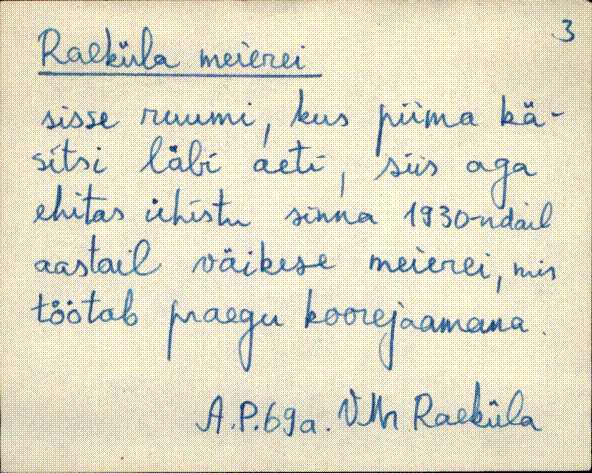 3
Raeküla meierei
sisse ruumi, kus piima kä-
sitsi läbi aeti, siis aga
ehitas ühistu sinna 1930-ndail
aastail väikese meierei, mis
töötab praegu koorejaamana.
A.P.69a. VMr Raeküla